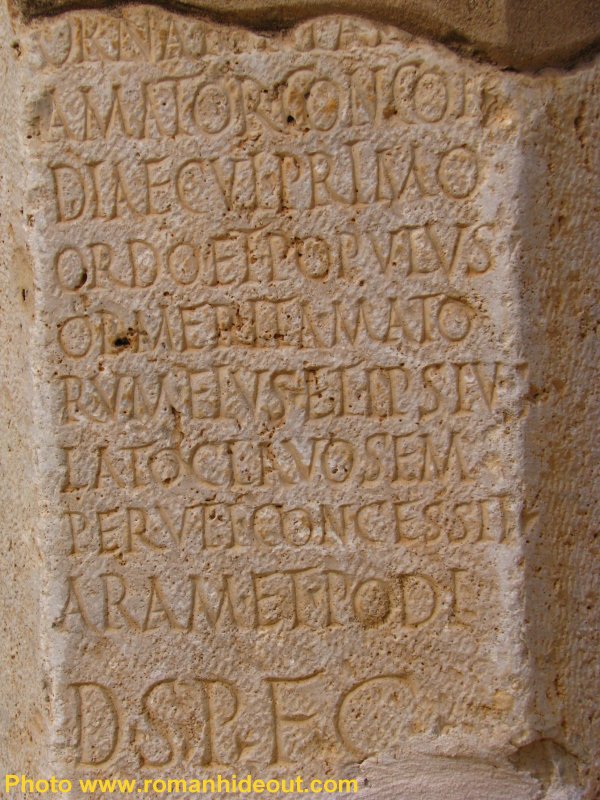 AMATOR CONCOR
DIAE CVI PRIMO
ORDO ET POPVLVS
OB MERITA MAIO
RVM EIVS ET IPSIVS
LATO CLAVO SEM
PER VTI CONCESSIT
ARAM ET PODI
D S P F C
Photo www.romanhideout.com